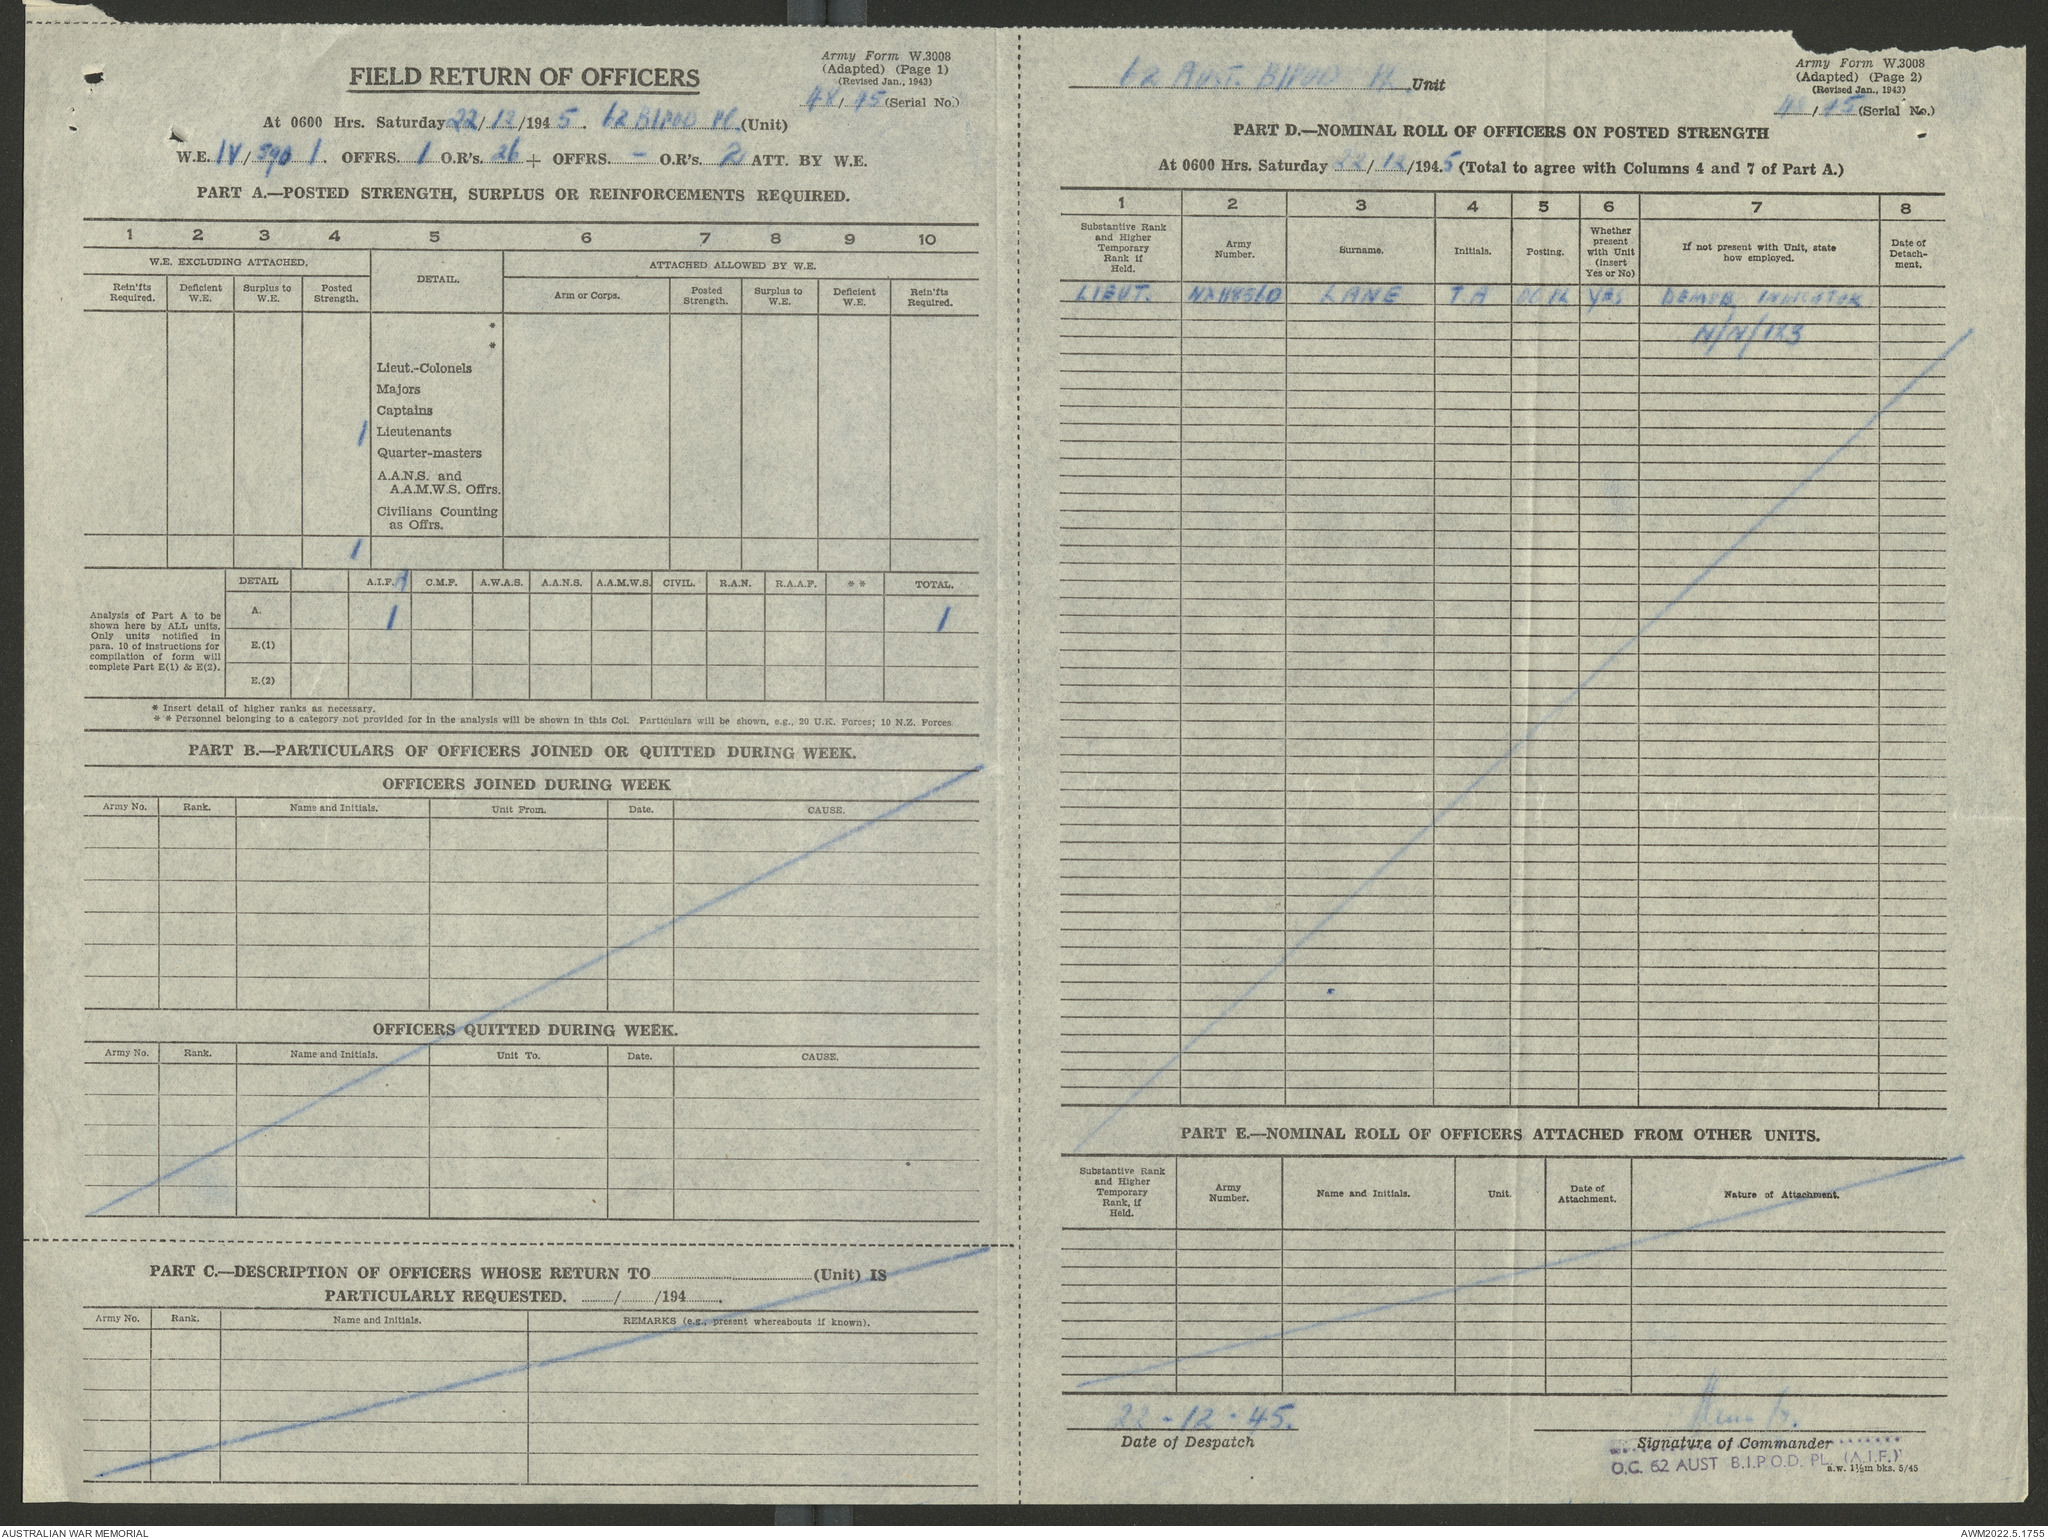 Army Form W.3008
(Adapted) (Page 1)
(Revised Jan., 1943)
48/45 (Serial No.)
FIELD RETURN OF OFFICERS
At 0600 Hrs. Saturday 22/12/1945. 62 BIPOD Pl. (Unit)
W.E. IV/590/1. OFFRS. 1 O.R's. 26 + OFFRS. - O.R's. 2 ATT. BY W.E.
PART A.—POSTED STRENGTH, SURPLUS OR REINFORCEMENTS REQUIRED.
1 2 3 4 5 6 7 8 9 10
W.E. EXCLUDING ATTACHED. DETAIL. ATTACHED ALLOWED BY W.E.
Rein'fts Required. Deficient W.E. Surplus to W.E. Posted Strength. Arm or Corps. Posted Strength. Surplus to W.E. Deficient W.E. Rein'fts Required.
*
*
Lieut.-Colonels
Majors
Captains
1 Lieutenants
Quarter-masters
A.A.N.S. and
A.A.M.W.S. Offrs.
Civilians Counting
as Offrs.
1
DETAIL A.I.F. C.M.F. A.W.A.S. A.A.N.S. A.A.M.W.S. CIVIL. R.A.N. R.A.A.F. ** TOTAL.
Analysis of Part A to be
shown here by ALL units.
Only units notified in
para. 10 of instructions for
compilation of form will
complete Part E(1) & E(2).
A. 1 1
E.(1)
E.(2)
* Insert detail of higher ranks as necessary.
* * Personnel belonging to a category not provided for in the analysis will be shown in this Col. Particulars will be shown, e.g., 20 U.K. Forces; 10 N.Z. Forces
PART B.—PARTICULARS OF OFFICERS JOINED OR QUITTED DURING WEEK.
OFFICERS JOINED DURING WEEK
Army No. Rank. Name and Initials. Unit From. Date. CAUSE.
OFFICERS QUITTED DURING WEEK.
Army No. Rank. Name and Initials. Unit To. Date. CAUSE.
PART C.—DESCRIPTION OF OFFICERS WHOSE RETURN TO (Unit) IS
PARTICULARLY REQUESTED. / /194 .
Army No. Rank. Name and Initials. REMARKS (e.g., present whereabouts if known).
62 AUST. BIPOD Pl. Unit
Army Form W.3008
(Adapted) (Page 2)
(Revised Jan., 1943)
48/45 (Serial No.)
PART D.—NOMINAL ROLL OF OFFICERS ON POSTED STRENGTH
At 0600 Hrs. Saturday 22/12/1945 (Total to agree with Columns 4 and 7 of Part A.)
1 2 3 4 5 6 7 8
Substantive Rank and Higher Temporary Rank if Held. Army Number. Surname. Initials. Posting. Whether present with Unit (insert Yes or No) If not present with Unit, state how employed. Date of Detachment.
LIEUT. NX118510 LANE T.A OC PL YES DEMOB INDICATOR
N/N/123
PART E.—NOMINAL ROLL OF OFFICERS ATTACHED FROM OTHER UNITS.
Substantive Rank and Higher Temporary Rank, if Held. Army Number. Name and Initials. Unit. Date of Attachment. Nature of Attachment.
22-12-45.
Date of Despatch
Signature of Commander
O.C. 62 AUST B.I.P.O.D. PL. (A.I.F.)
a.w. 1½m bks. 5/45
AUSTRALIAN WAR MEMORIAL
AWM2022.5.1755